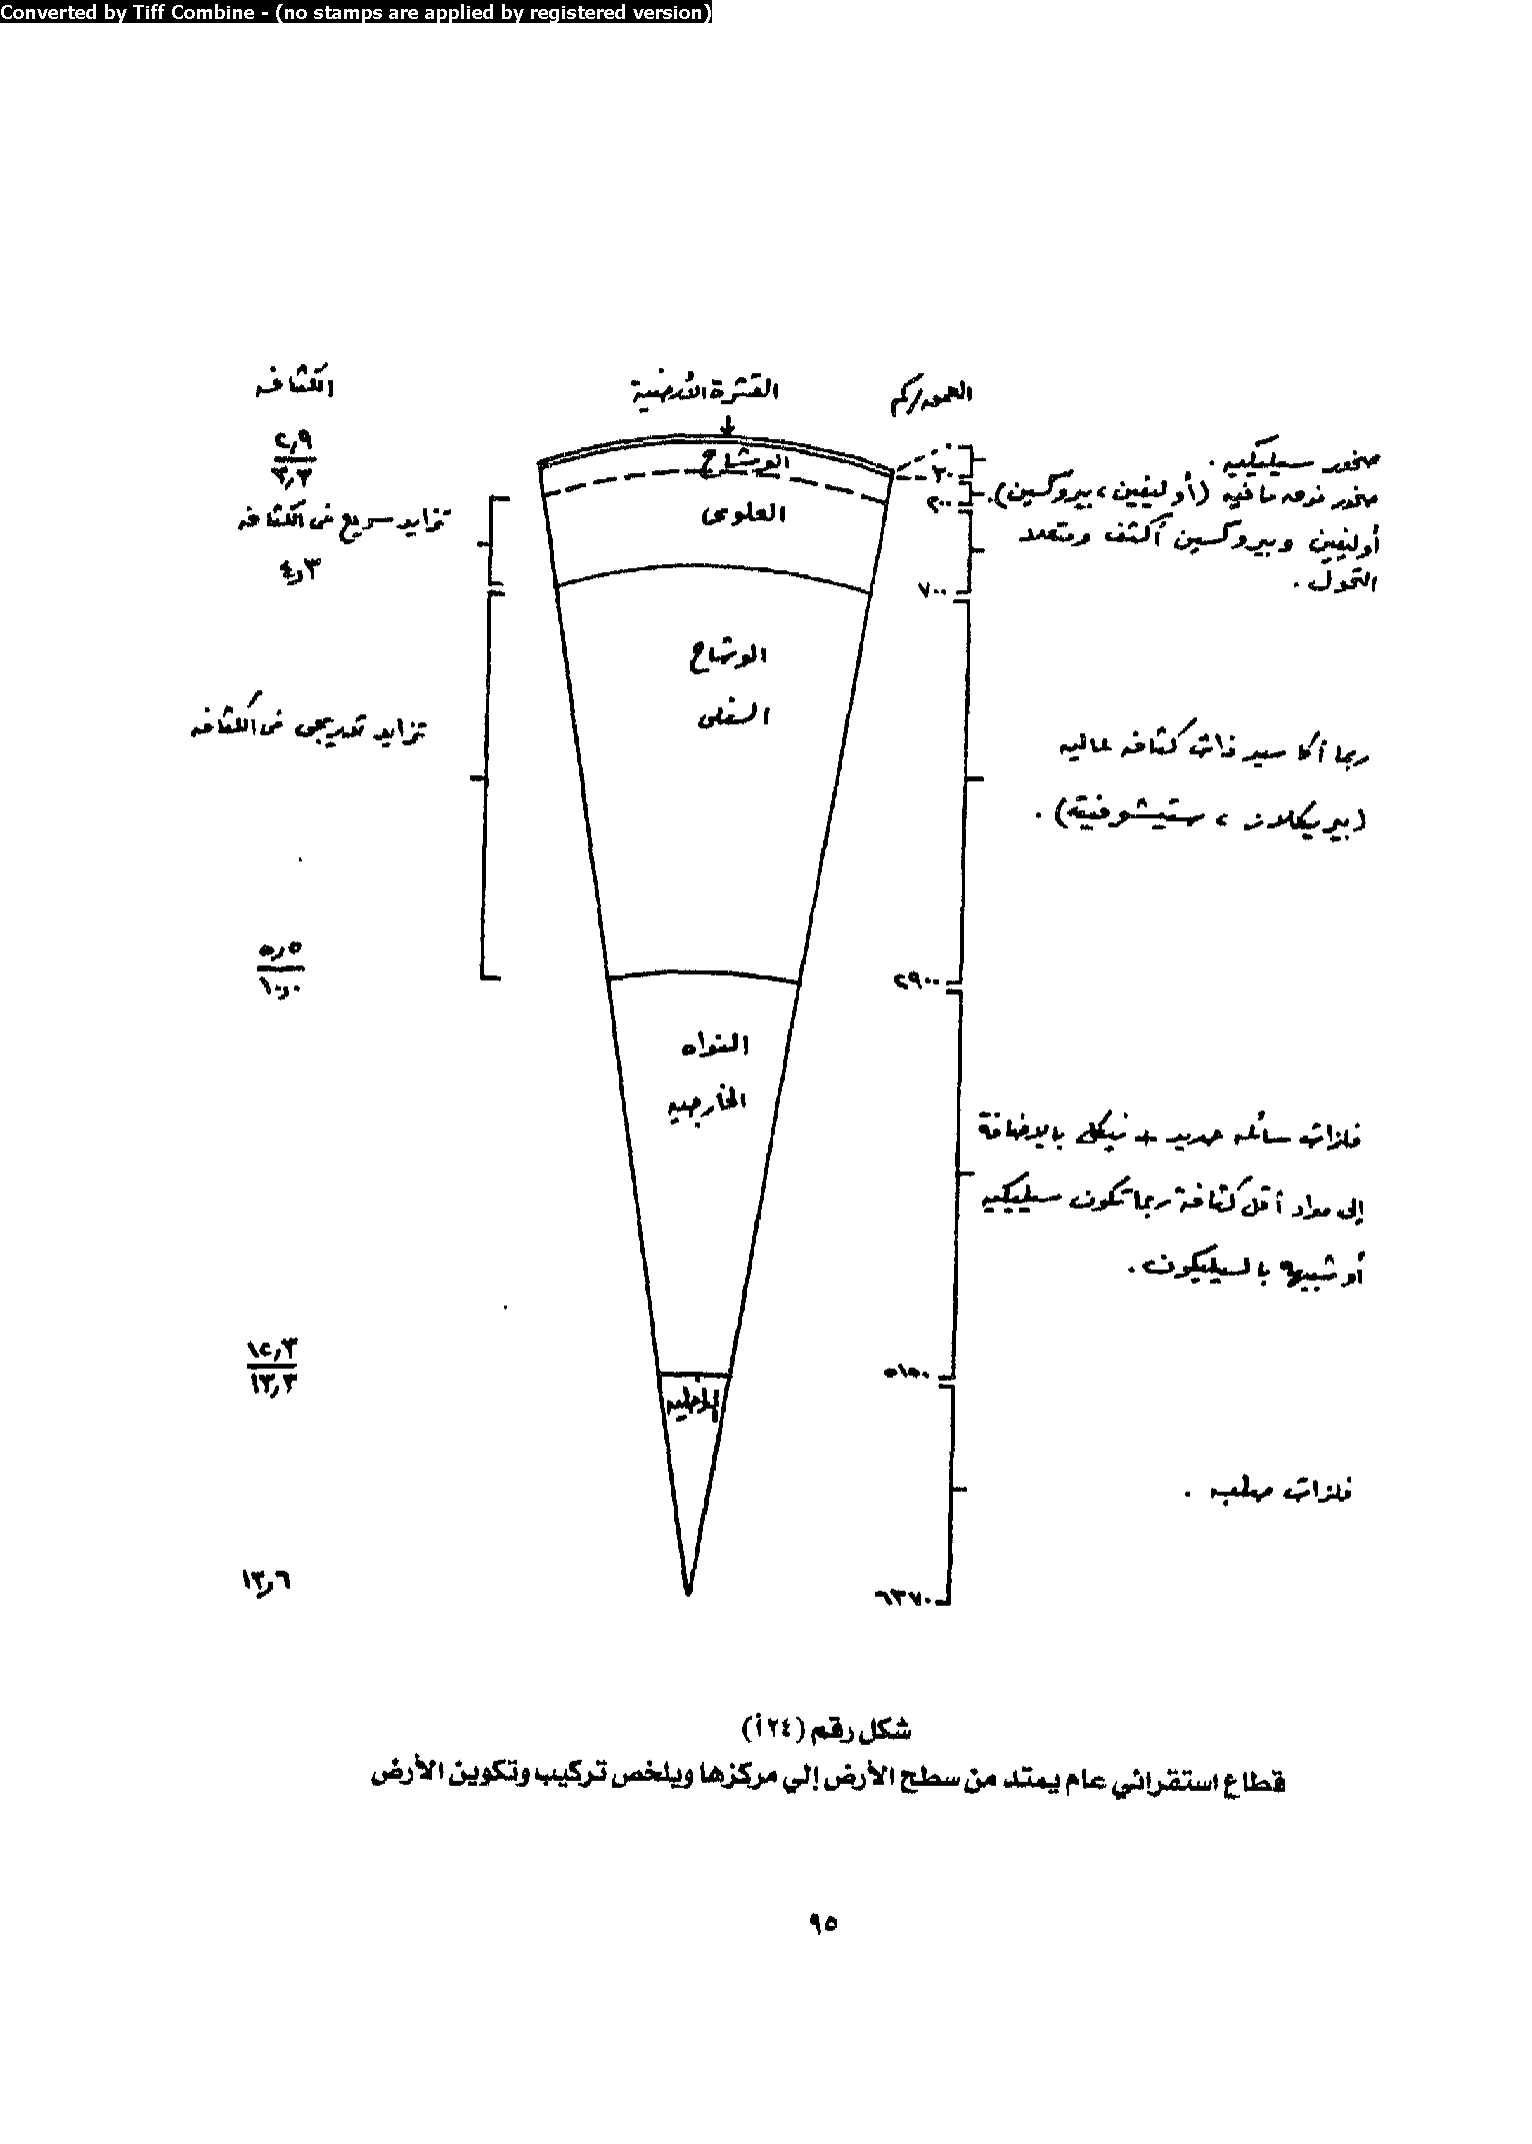 Converted by Tiff Combine - (no stamps are applied by registered version)
الكثافه
القشرة الأرضية
العمق/كم
٢,٩
٣,٣
تزايد سريع فى الكثافه
٤,٣
تزايد تدريجى فى الكثافه
٥,٥
١٠,٠
١٢,٣
١٣,٣
١٣,٦
الوشاح
العلوى
الوشاح
السفلى
النواه
الخارجيه
الداخليه
٣٠
٢٠٠
٧٠٠
٢٩٠٠
٥١٥٠
٦٣٧٠
صخور سيليكيه.
صخور فوق مافيه (أوليفين، بيروكسين).
أوليفين وبيروكسين أكثف ومتعدد
التحول.
ربما أكاسيد ذات كثافه عاليه
(بيريكلاز، ستيشوفيتة).
فلزات سائله حديد + نيكل بالإضافة
إلى مواد أقل كثافة ربما تكون سيليكيه
أو شبيهه بالسيليكون.
فلزات صلبه.
شكل رقم (٢٤أ)
قطاع استقرائي عام يمتد من سطح الأرض إلي مركزها ويلخص تركيب وتكوين الأرض
٩٥